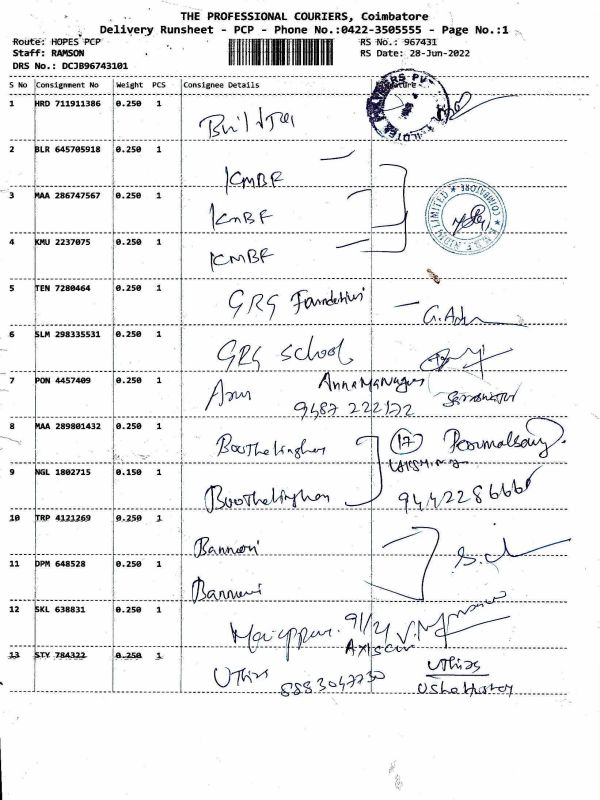 THE PROFESSIONAL COURIERS, Coimbatore
Delivery Runsheet - PCP - Phone No.:0422-3505555 - Page No.:1
Route: HOPES PCP RS No.: 967431
Staff: RAMSON RS Date: 28-Jun-2022
DRS No.: DCJB96743101
S No Consignment No Weight PCS Consignee Details
1 HRD 711911386 0.250 1
2 BLR 645705918 0.250 1 KMBF
3 MAA 286747567 0.250 1 KMBF
4 KMU 2237075 0.250 1 KMBF
COIMBATORE
5 TEN 7280464 0.250 1 GRG Foundation
6 SLM 298335531 0.250 1 GRG School
7 PON 4457409 0.250 1 Arun Annamanagar
9487 222122
8 MAA 289801432 0.250 1 Boothalingham 17
9 NGL 1802715 0.150 1 Boothalingham
10 TRP 4121269 0.250 1 Bannari
11 DPM 648528 0.250 1 Bannari
12 SKL 638831 0.250 1 91/21
13 STY 784322 0.250 1 Uthiss Uthiss
8883047730